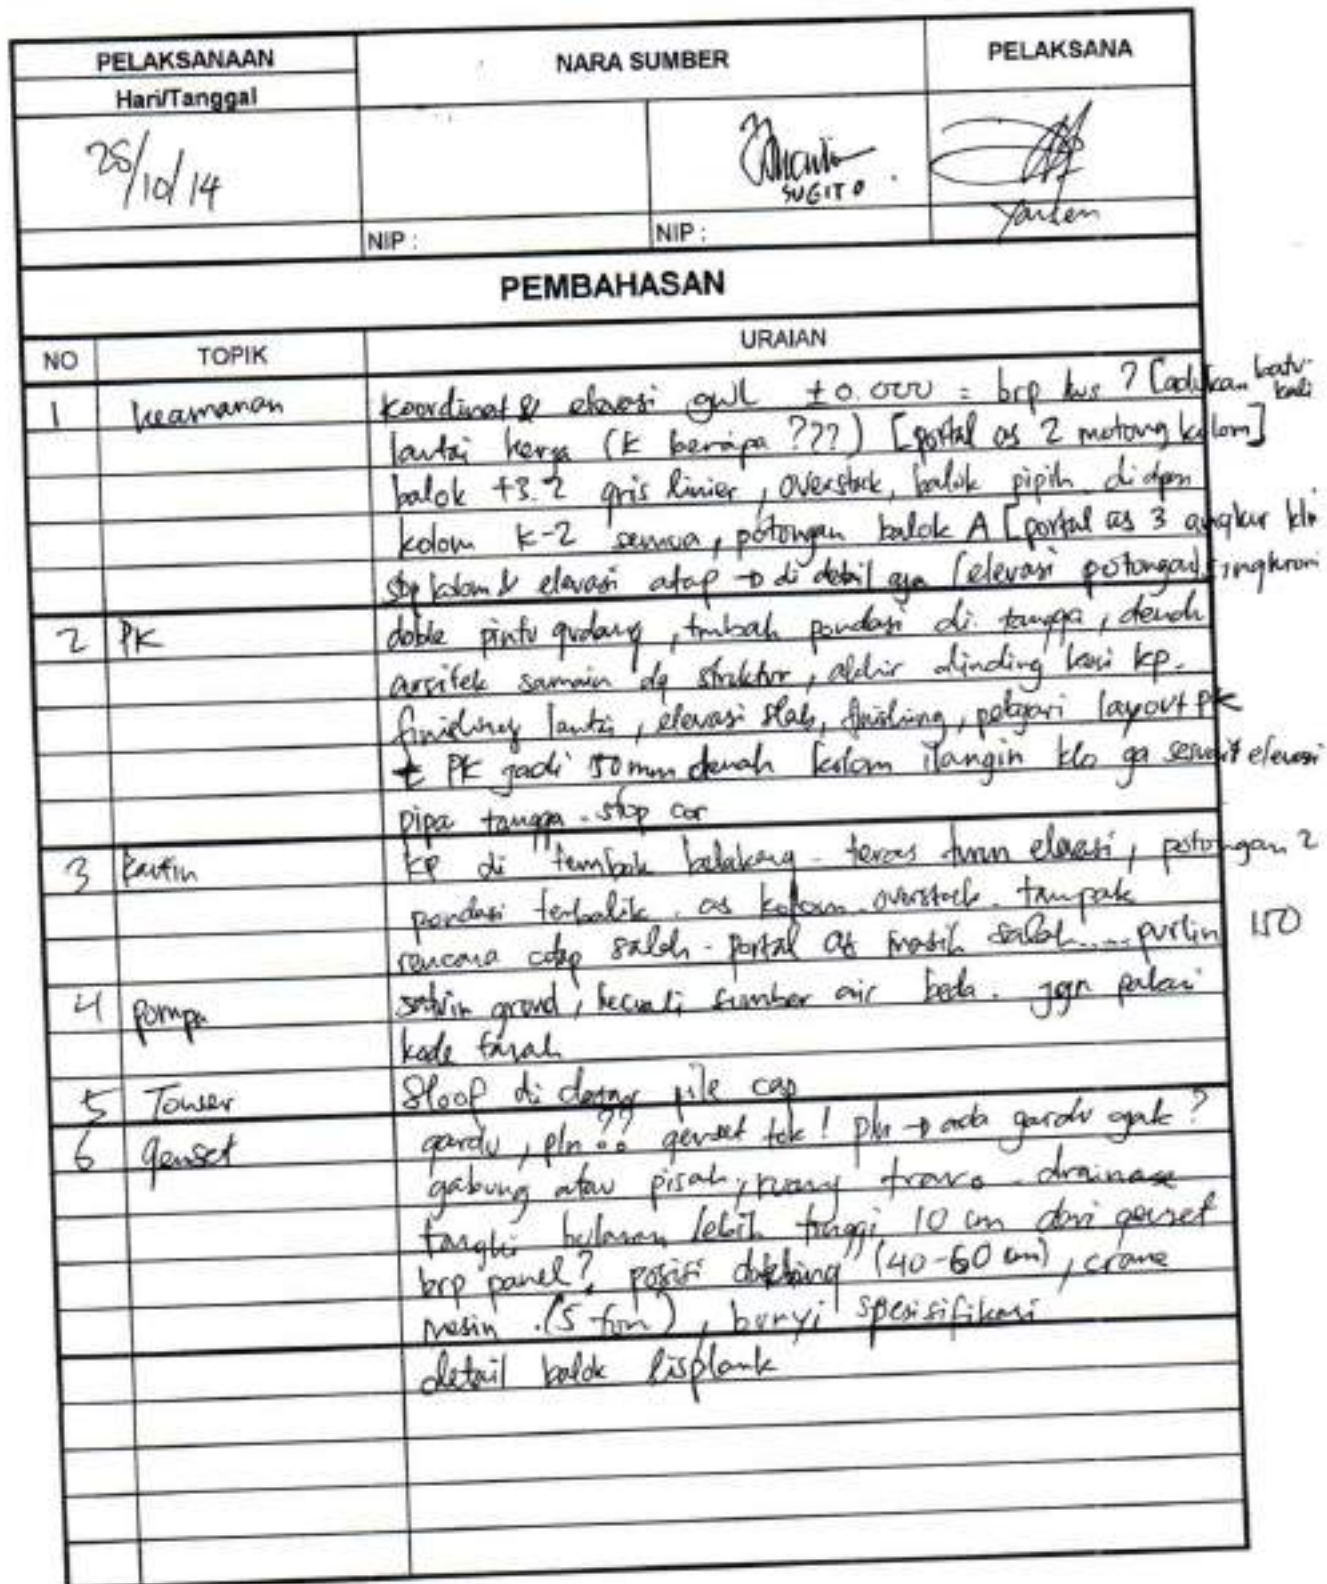 PELAKSANAAN NARA SUMBER PELAKSANA
Hari/Tanggal
28/10/14
SUGITO
NIP : NIP :
PEMBAHASAN
NO TOPIK URAIAN
1 keamanan koordinat & elevasi gwl ±0.000 = brp ? [adukan batu kali
lantai kerja (K berapa ???) [portal as 2 motong kolom]
balok +3.2 gris linier, overstek, balok pipih di dpn
kolom K-2 semua, potongan balok A [portal as 3 angkur
stop kolom & elevasi atap → di detail aja [elevasi potongan]
2 PK doble pintu gudang, tmbah pondasi di tangga, denah
arsitek samain dg struktur, akhir dinding kasi kp.
finishing lantai, elevasi slab, finishing, pelajari layout PK
PK jadi 50 mm denah kolom ilangin klo ga elevasi
pipa tangga - stop cor
3 kantin KP di tembok belakang - teras turun elevasi, potongan 2
pondasi terbalik . as kolom . overstock . tampak
rencana atap salah - portal as masih salah .... purlin 150
4 pompa kecuali sumber air beda . jgn pakai
kode tanah
5 Tower Sloof di dasar pile cap
6 genset gardu, pln ?? genset tok ! pln → ada gardu gak ?
gabung atau pisah, ruang travo . drainase
tangki bulanan lebih tinggi 10 cm dari genset
brp panel ? posisi (40-60 cm), crane
mesin . (5 ton), bunyi spesisifikasi
detail balok lisplank